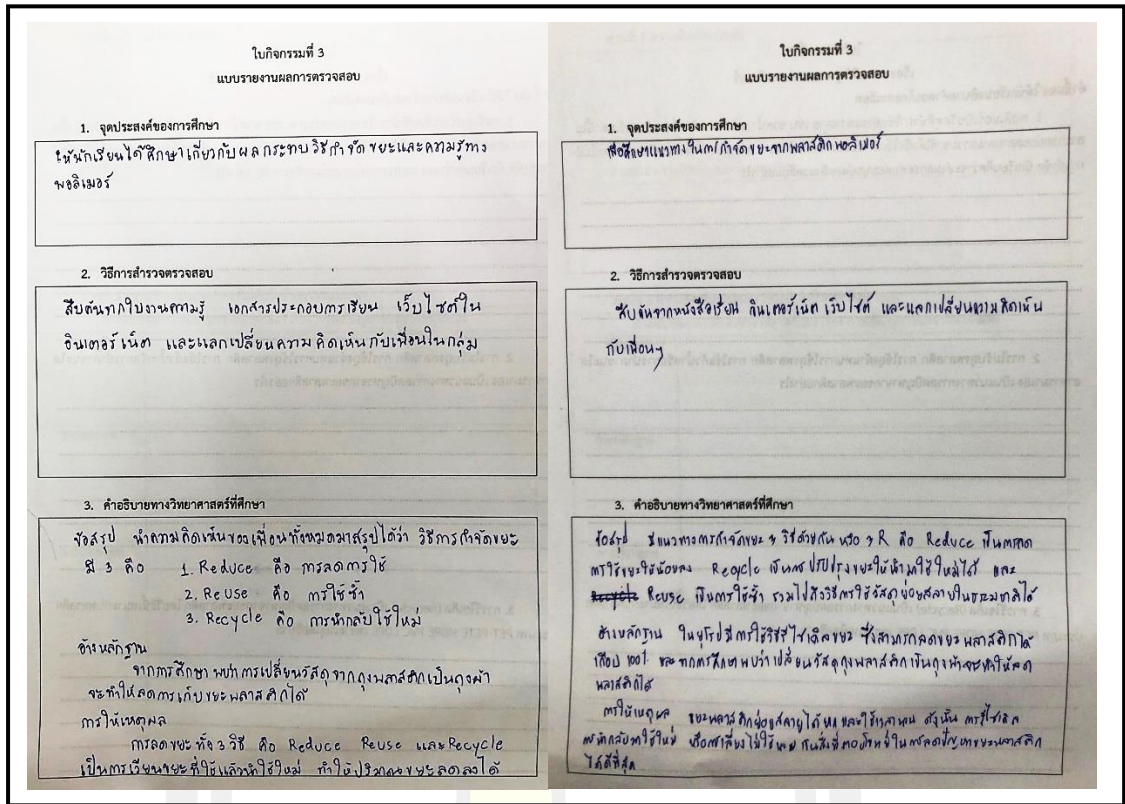 ใบกิจกรรมที่ 3
แบบรายงานผลการตรวจสอบ
1. จุดประสงค์ของการศึกษา
ให้นักเรียนได้ศึกษาเกี่ยวกับผลกระทบวิธีกำจัดขยะและความรู้ทาง
พอลิเมอร์
2. วิธีการสำรวจตรวจสอบ
สืบค้นจากใบงานความรู้ เอกสารประกอบการเรียน เว็บไซต์ใน
อินเตอร์เน็ต และแลกเปลี่ยนความคิดเห็นกับเพื่อนในกลุ่ม
3. คำอธิบายทางวิทยาศาสตร์ที่ศึกษา
ข้อสรุป นำความคิดเห็นของเพื่อนทั้งหมดมาสรุปได้ว่า วิธีการกำจัดขยะ
มี 3 คือ 1. Reduce คือ การลดการใช้
2. Reuse คือ การใช้ซ้ำ
3. Recycle คือ การนำกลับใช้ใหม่
อ้างหลักฐาน
จากการศึกษา พบว่าการเปลี่ยนวัสดุจากถุงพลาสติกเป็นถุงผ้า
จะทำให้ลดการเก็บขยะพลาสติกได้
การให้เหตุผล
การลดขยะทั้ง 3 วิธี คือ Reduce Reuse และ Recycle
เป็นการเวียนขยะที่ใช้แล้วนำใช้ใหม่ ทำให้ปริมาณขยะลดลงได้
ใบกิจกรรมที่ 3
แบบรายงานผลการตรวจสอบ
1. จุดประสงค์ของการศึกษา
เพื่อศึกษาแนวทางในการกำจัดขยะจากพลาสติกพอลิเมอร์
2. วิธีการสำรวจตรวจสอบ
สืบค้นจากหนังสือเรียน อินเตอร์เน็ต เว็บไซต์ และแลกเปลี่ยนความคิดเห็น
กับเพื่อนๆ
3. คำอธิบายทางวิทยาศาสตร์ที่ศึกษา
ข้อสรุป มีแนวทางการกำจัดขยะ 3 วิธีด้วยกัน หรือ 3 R คือ Reduce เป็นการลด
การใช้ขยะให้น้อยลง Recycle เป็นการปรับปรุงขยะให้นำมาใช้ใหม่ได้ และ
Reuse เป็นการใช้ซ้ำ รวมไปถึงวิธีการใช้วัสดุย่อยสลายในธรรมชาติได้
อ้างหลักฐาน ในยุโรปมีการใช้วิธีรีไซเคิลขยะ ซึ่งสามารถลดขยะพลาสติกได้
เกือบ 100% และจากการศึกษาพบว่าเปลี่ยนวัสดุถุงพลาสติกเป็นถุงผ้าจะทำให้ลด
พลาสติกได้
การให้เหตุผล ขยะพลาสติกย่อยสลายได้ยากและใช้เวลานาน ดังนั้น การรีไซเคิล
การนำกลับมาใช้ใหม่ หรือการเลี่ยงไม่ใช้ ในการลดปัญหาขยะพลาสติก
ได้ดีที่สุด